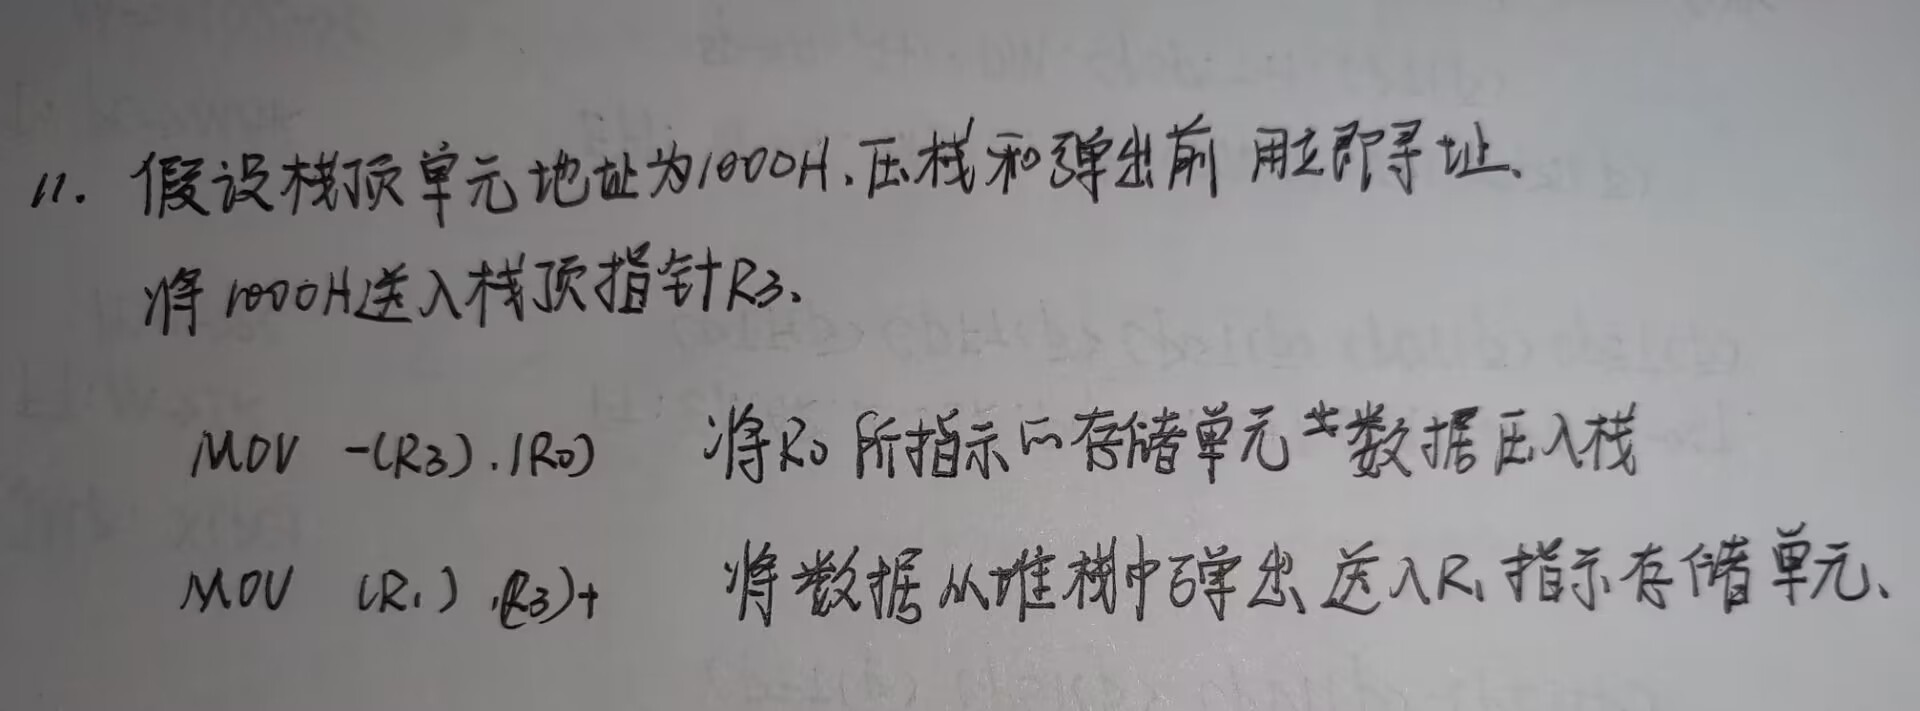 11. 假设栈顶单元地址为1000H、压栈和弹出前 用立即寻址、
将1000H送入栈顶指针R3、
MOV -(R3).(R0) 将R0所指示的存储单元 数据压入栈
MOV (R1) .(R3)+ 将数据从堆栈中弹出 送入R1指示存储单元、